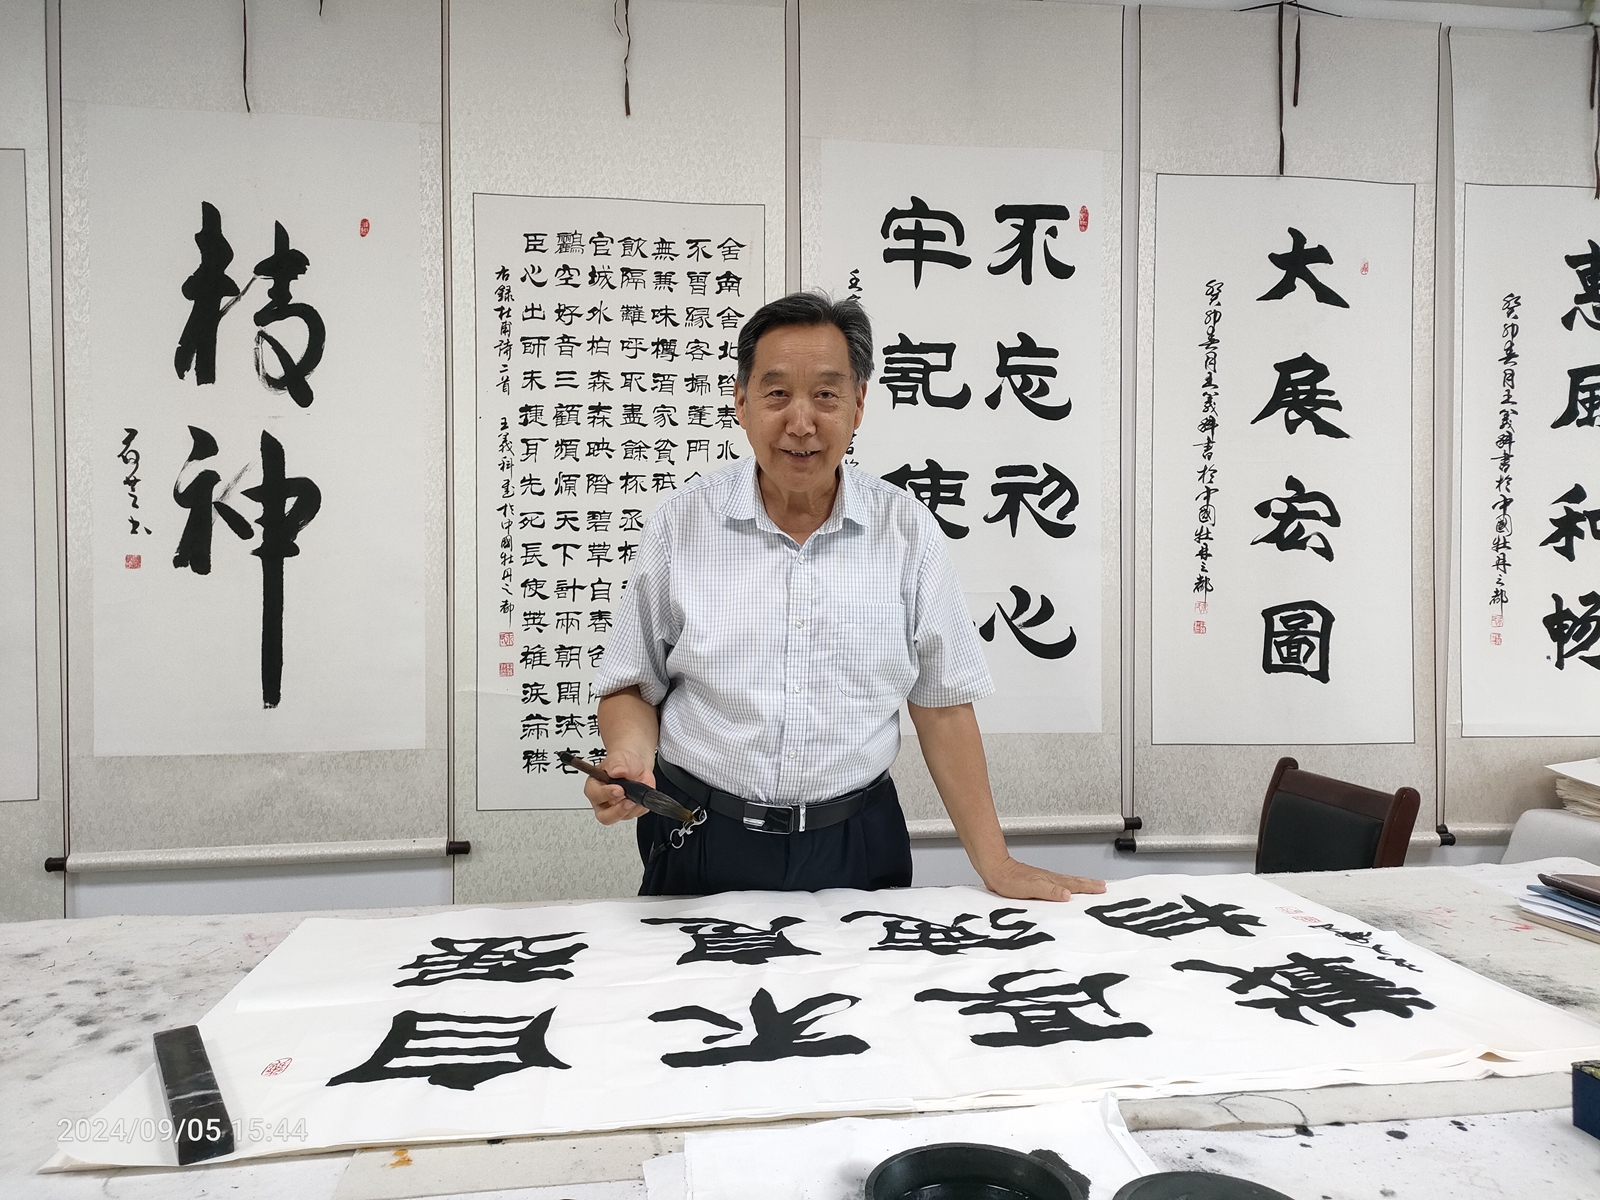 精神
石芝书
舍南舍北皆春水
不曾緣客掃蓬門
無兼味樽酒家貧衹
飲隔籬呼取盡餘杯丞相
官城外柏森森映階碧草自春色
鸝空好音三顧頻煩天下計兩朝開濟老
臣心出師未捷身先死長使英雄淚滿襟
右錄杜甫詩二首 王義科書於中國牡丹之都
不忘初心
牢記使
大展宏圖
癸卯春月王義科書於中國牡丹之都
惠風和畅
癸卯春月王義科書於中國牡丹之都
自不
厚德
物
2024/09/05 15:44